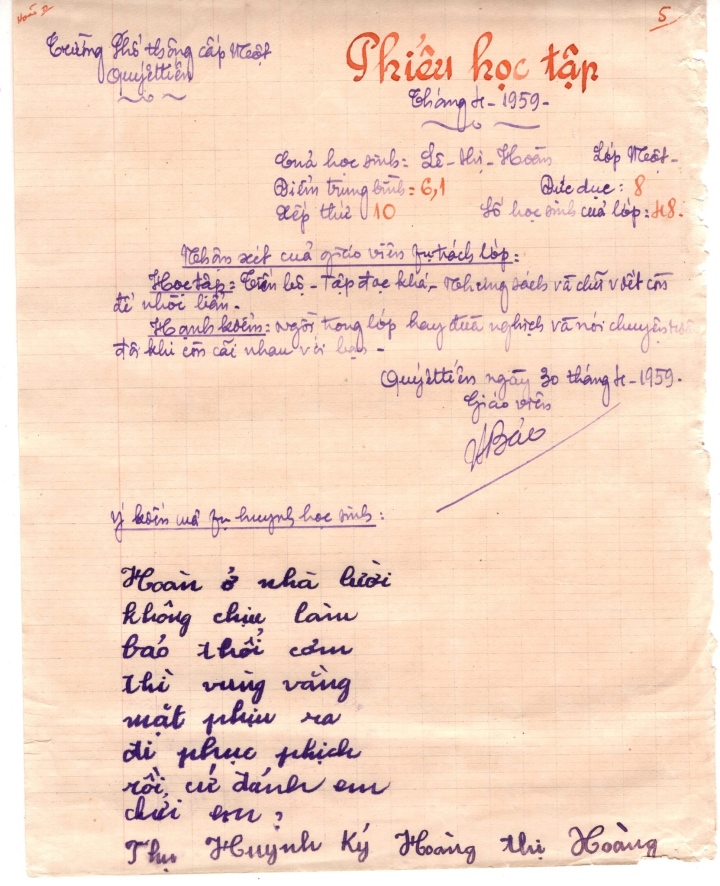 Hoàn
5
Trường Phổ thông cấp Một
Quyết tiến
Phiếu học tập
Tháng 4 - 1959 -
Của học sinh: Lê - thị - Hoàn Lớp Một -
Điểm trung bình: 6,1 Đức dục: 8
Xếp thứ 10 Số học sinh của lớp: 48.
Nhận xét của giáo viên fụ trách lớp:
Học tập: Tiến bộ - Tập đọc khá, - Nhưng sách vở chữ viết còn
để nhòi bẩn.
Hạnh kiểm: Ngồi trong lớp hay đùa nghịch và nói chuyện
đôi khi còn cãi nhau với bạn -
Quyết tiến ngày 30 tháng 4 - 1959.
Giáo viên
Bảo
Ý kiến của fụ huynh học sinh:
Hoàn ở nhà lười
không chịu làm
bảo thổi cơm
thì vùng vằng
mặt phịu ra
đi phục phịch
rồi, cứ đánh em
chửi em ?
Thụ Huynh Ký Hoàng thị Hoàng